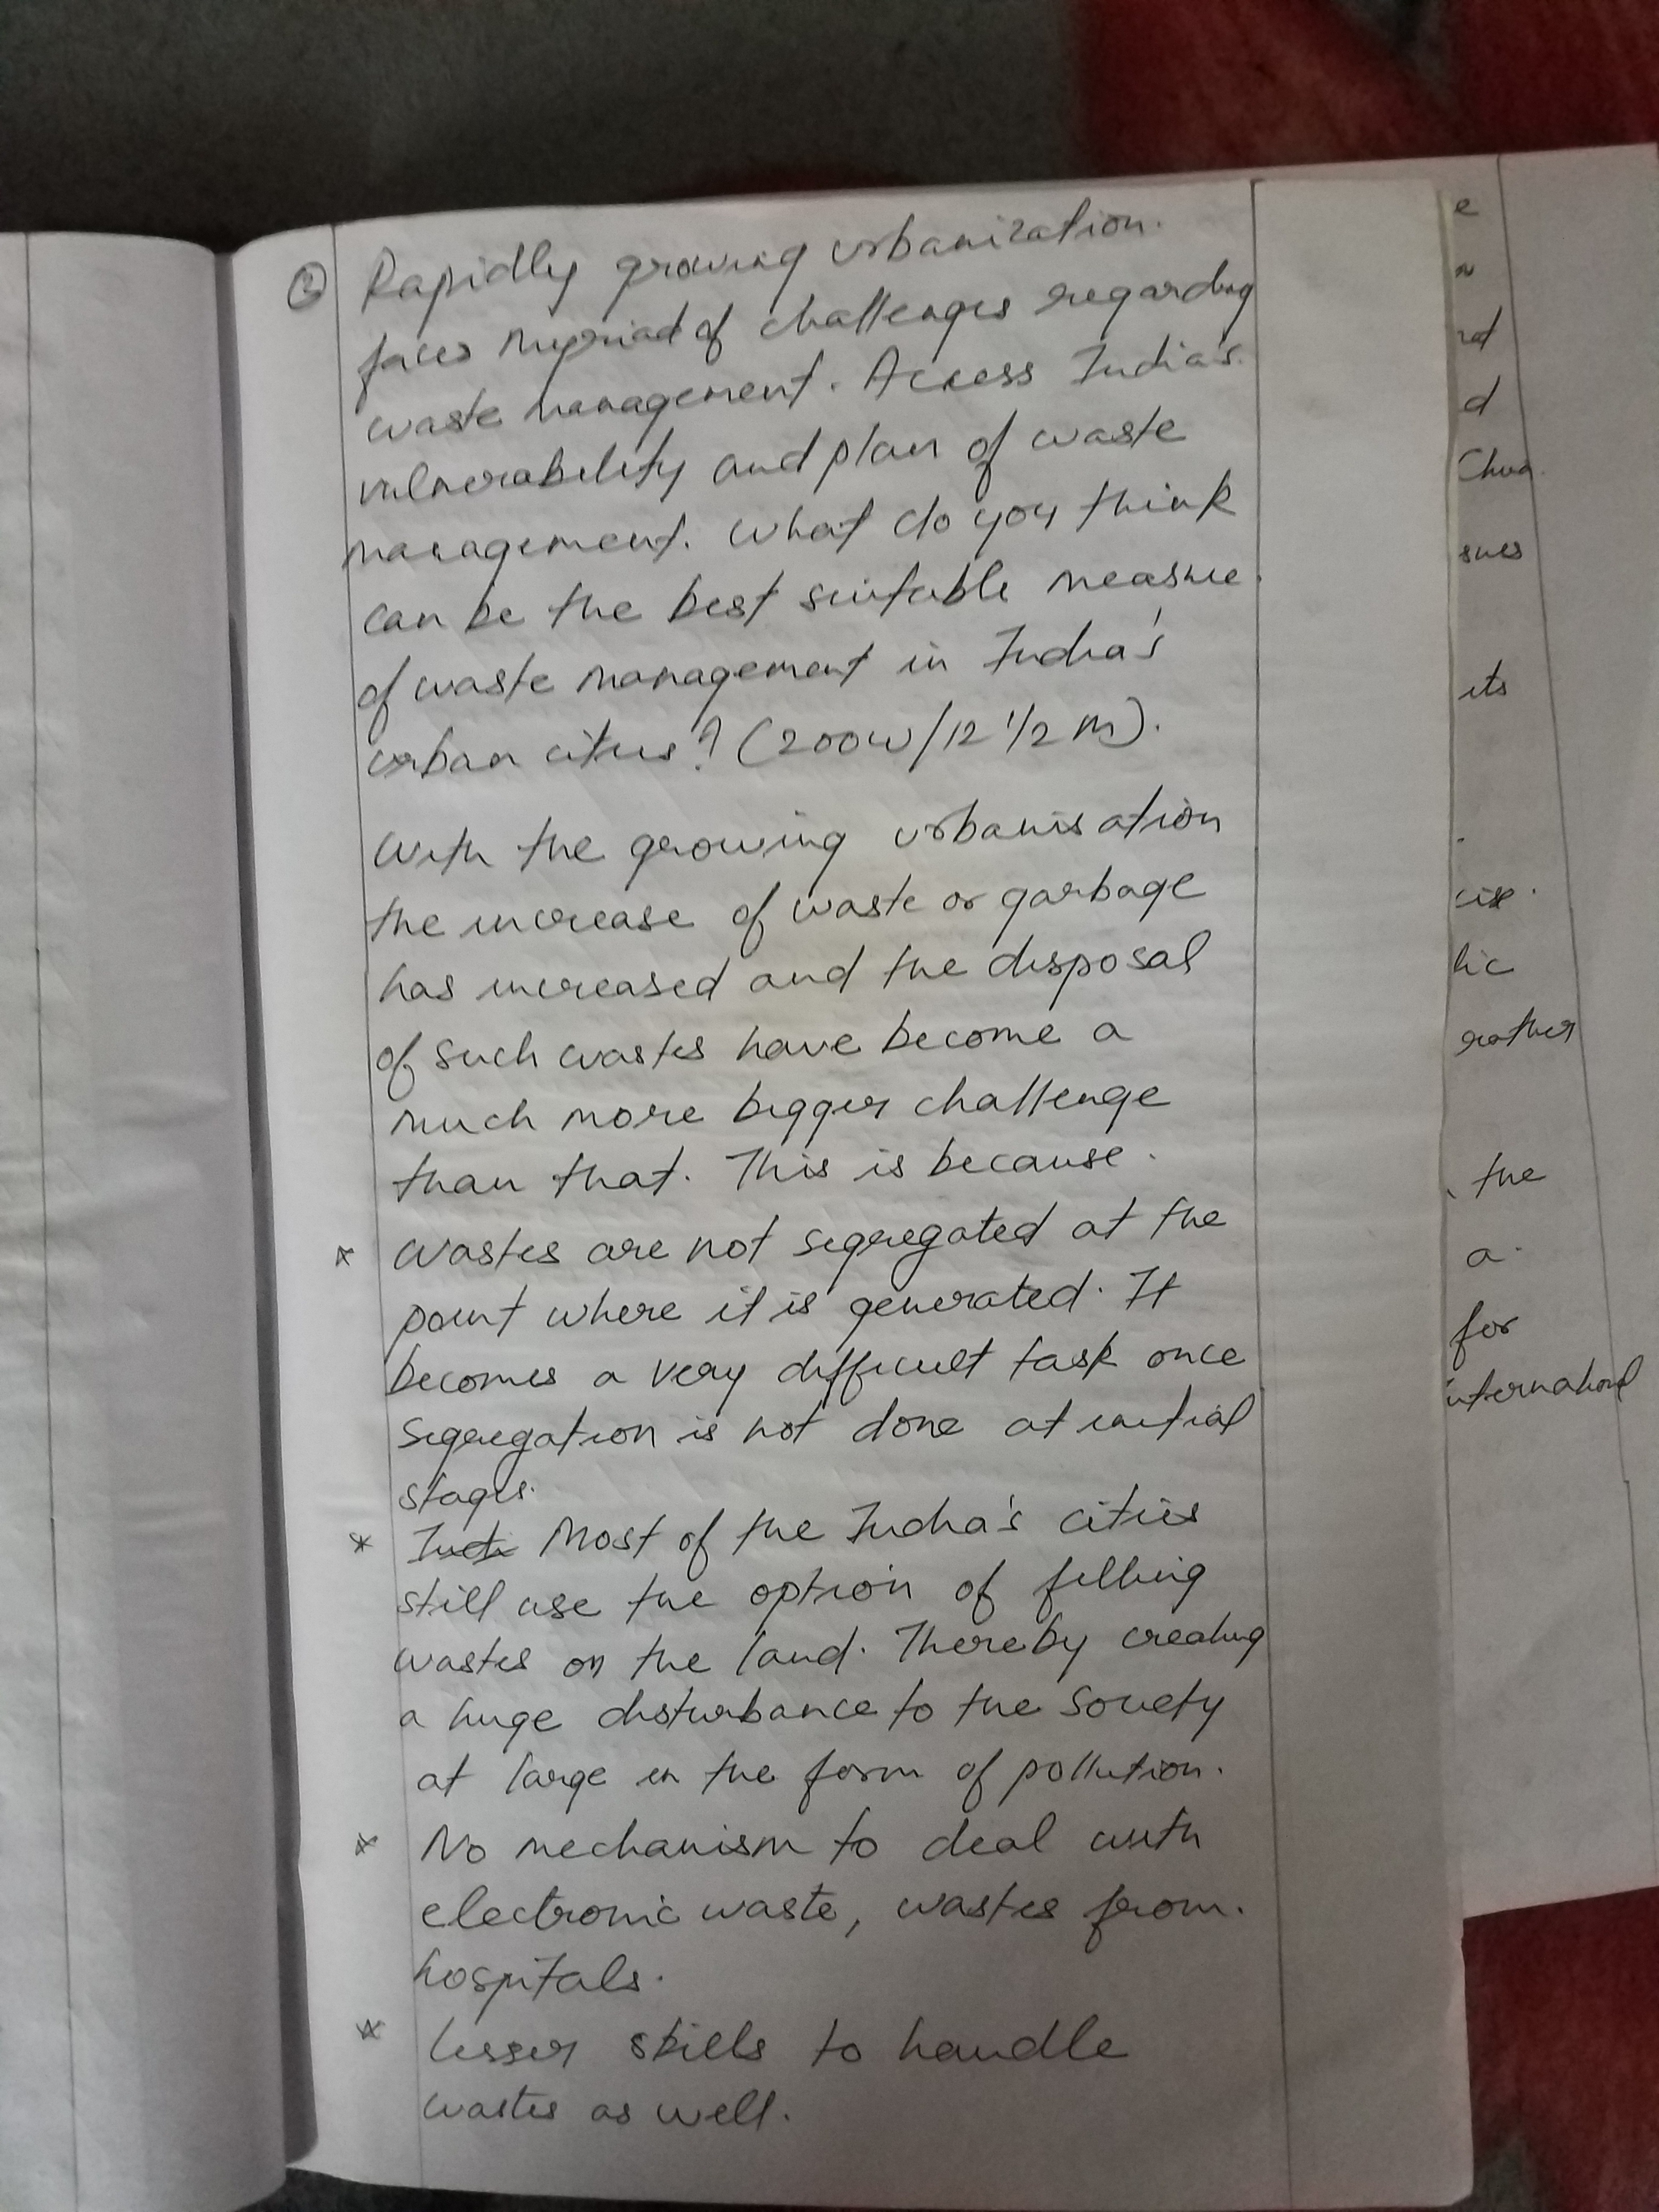 ② Rapidly growing urbanization.
faces myriad of challenges regarding
waste management. Access India's.
vulnerability and plan of waste
management. What do you think
can be the best suitable measure.
of waste management in India's
urban cities? (200w/12 1/2 M).
With the growing urbanisation
the increase of waste or garbage
has increased and the disposal
of such wastes have become a
much more bigger challenge
than that. This is because.
* Wastes are not segregated at the
point where it is generated. It
becomes a very difficult task once
segregation is not done at initial
stages.
* Most of the India's cities
still use the option of filling
wastes on the land. Thereby creating
a huge disturbance to the society
at large in the form of pollution.
* No mechanism to deal with
electronic waste, wastes from.
hospitals.
* Lesser skills to handle
wastes as well.
e
n
d
its
lic
rather
the
a
for
international